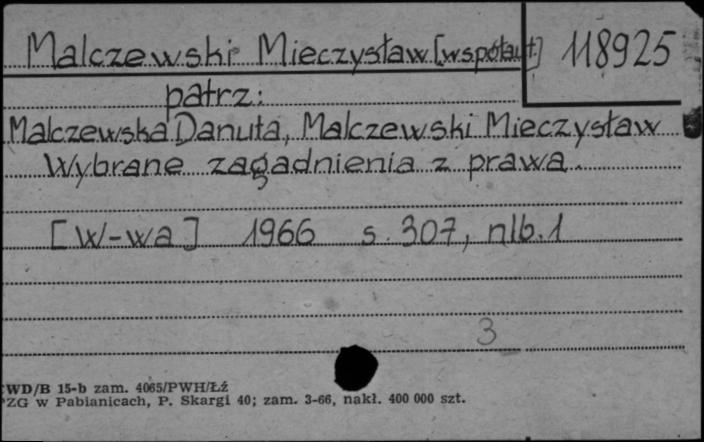 Malczewski Mieczysław [współaut.] 118925
patrz:
Malczewska Danuta, Malczewski Mieczysław
Wybrane zagadnienia z prawa.
[W-wa] 1966 s. 307, nlb. 1
3
WD/B 15-b zam. 4065/PWH/Łź
PZG w Pabianicach, P. Skargi 40; zam. 3-66, nakł. 400 000 szt.